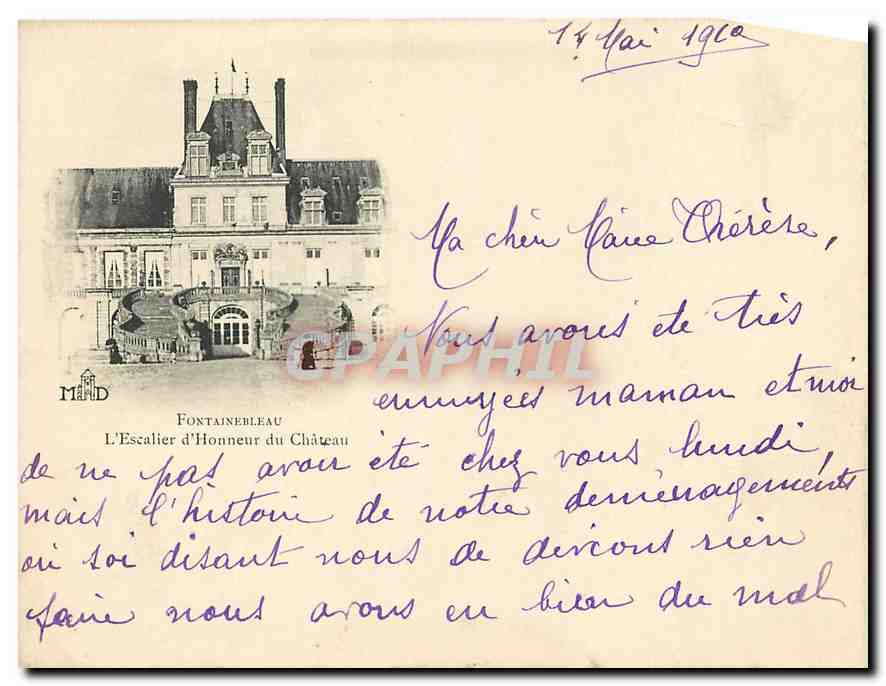 14 Mai 1910
Ma chère Marie Thérèse,
Nous avons été très
ennuyées maman et moi
de ne pas avoir été chez vous lundi,
mais l'histoire de notre déménagements
où soi disant nous de devions rien
faire nous avons eu bien du mal
CPAPHIL
MD
FONTAINEBLEAU
L'Escalier d'Honneur du Château